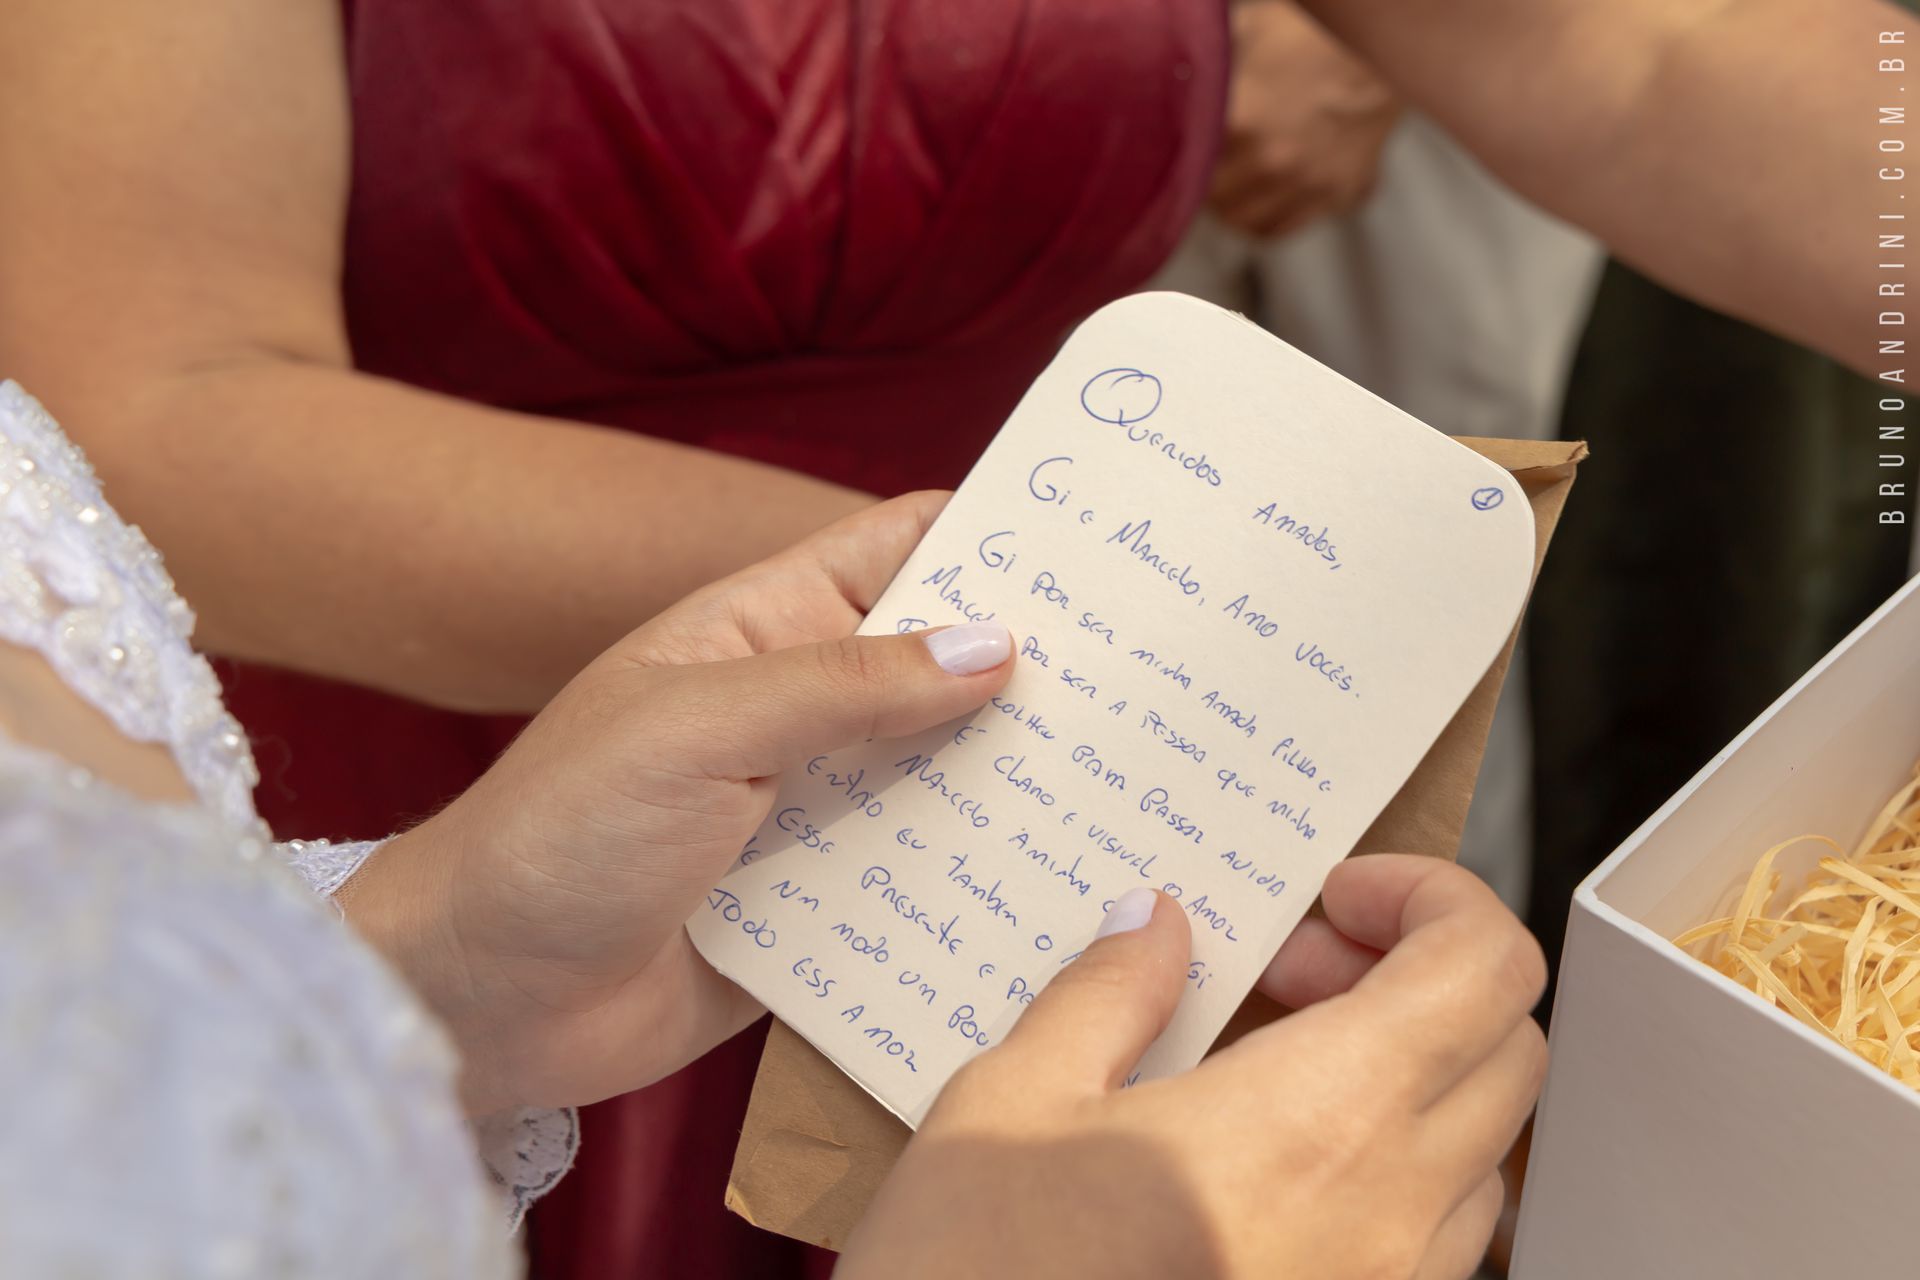 Queridos Amados,
1
Gi e Marcelo, Amo vocês.
Gi por ser minha amada filha e
Marcelo por ser a pessoa que minha
colheu para passar a vida
É claro e visivel o Amor
Marcelo a minha Gi
Então eu tambem o
Esse Presente e
de um modo um
Todo ess amor
BRUNOANDRINI.COM.BR